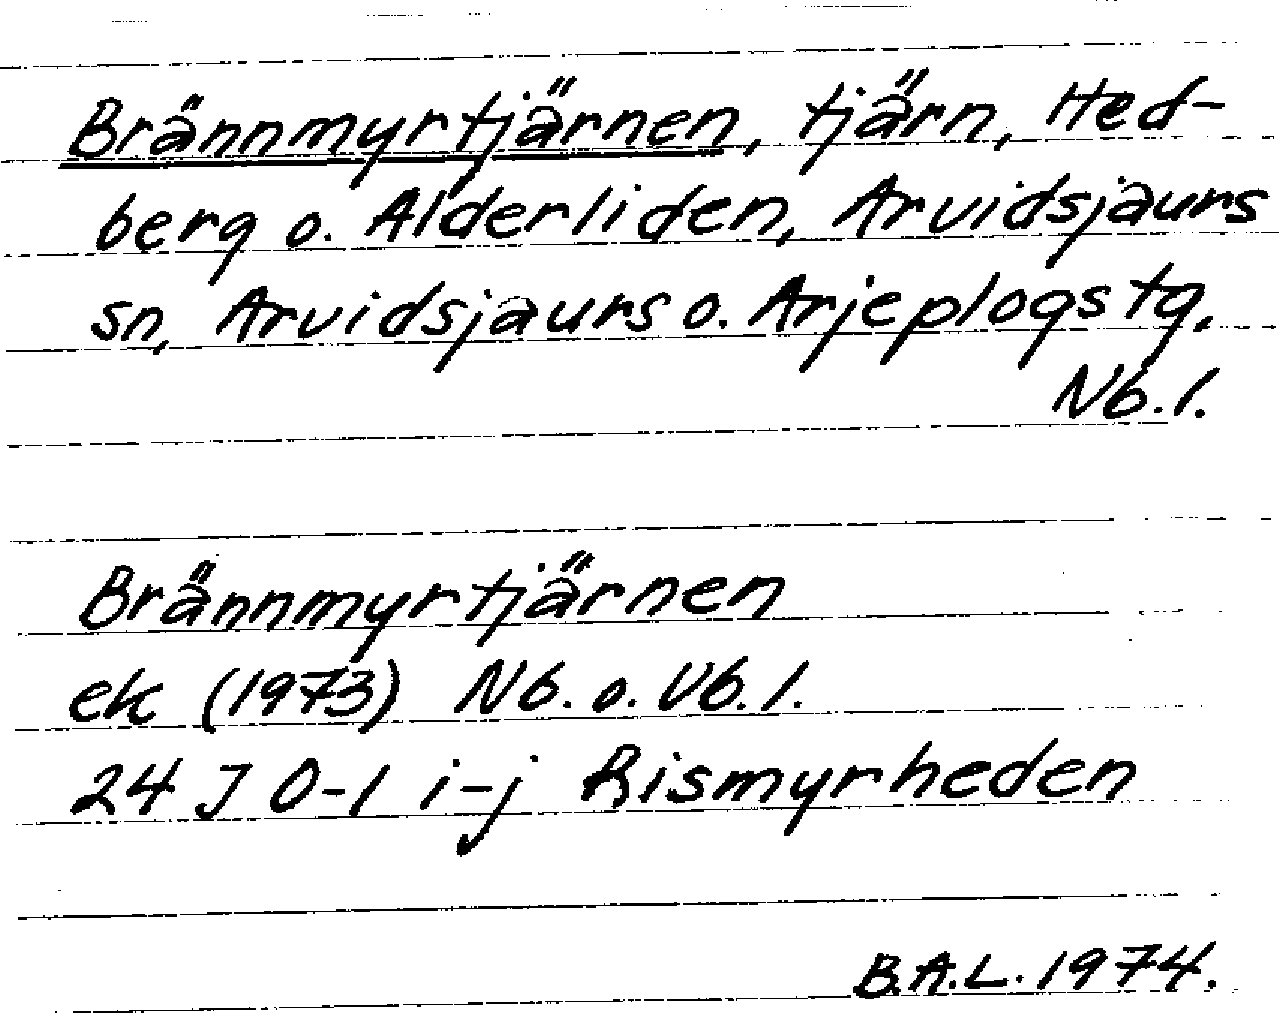 Brännmyrtjärnen, tjärn, Hed-
berg o. Alderliden, Arvidsjaurs
sn, Arvidsjaurs o. Arjeplogs tg,
Nb. l.
Brännmyrtjärnen
ek (1973) Nb. o. Vb. l.
24 J 0-1 i-j Rismyrheden
B.A.L. 1974.